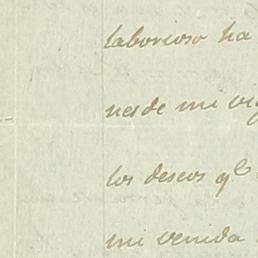 laborioso ha
nesde mi vi
los deseos qᵉ
mi venida